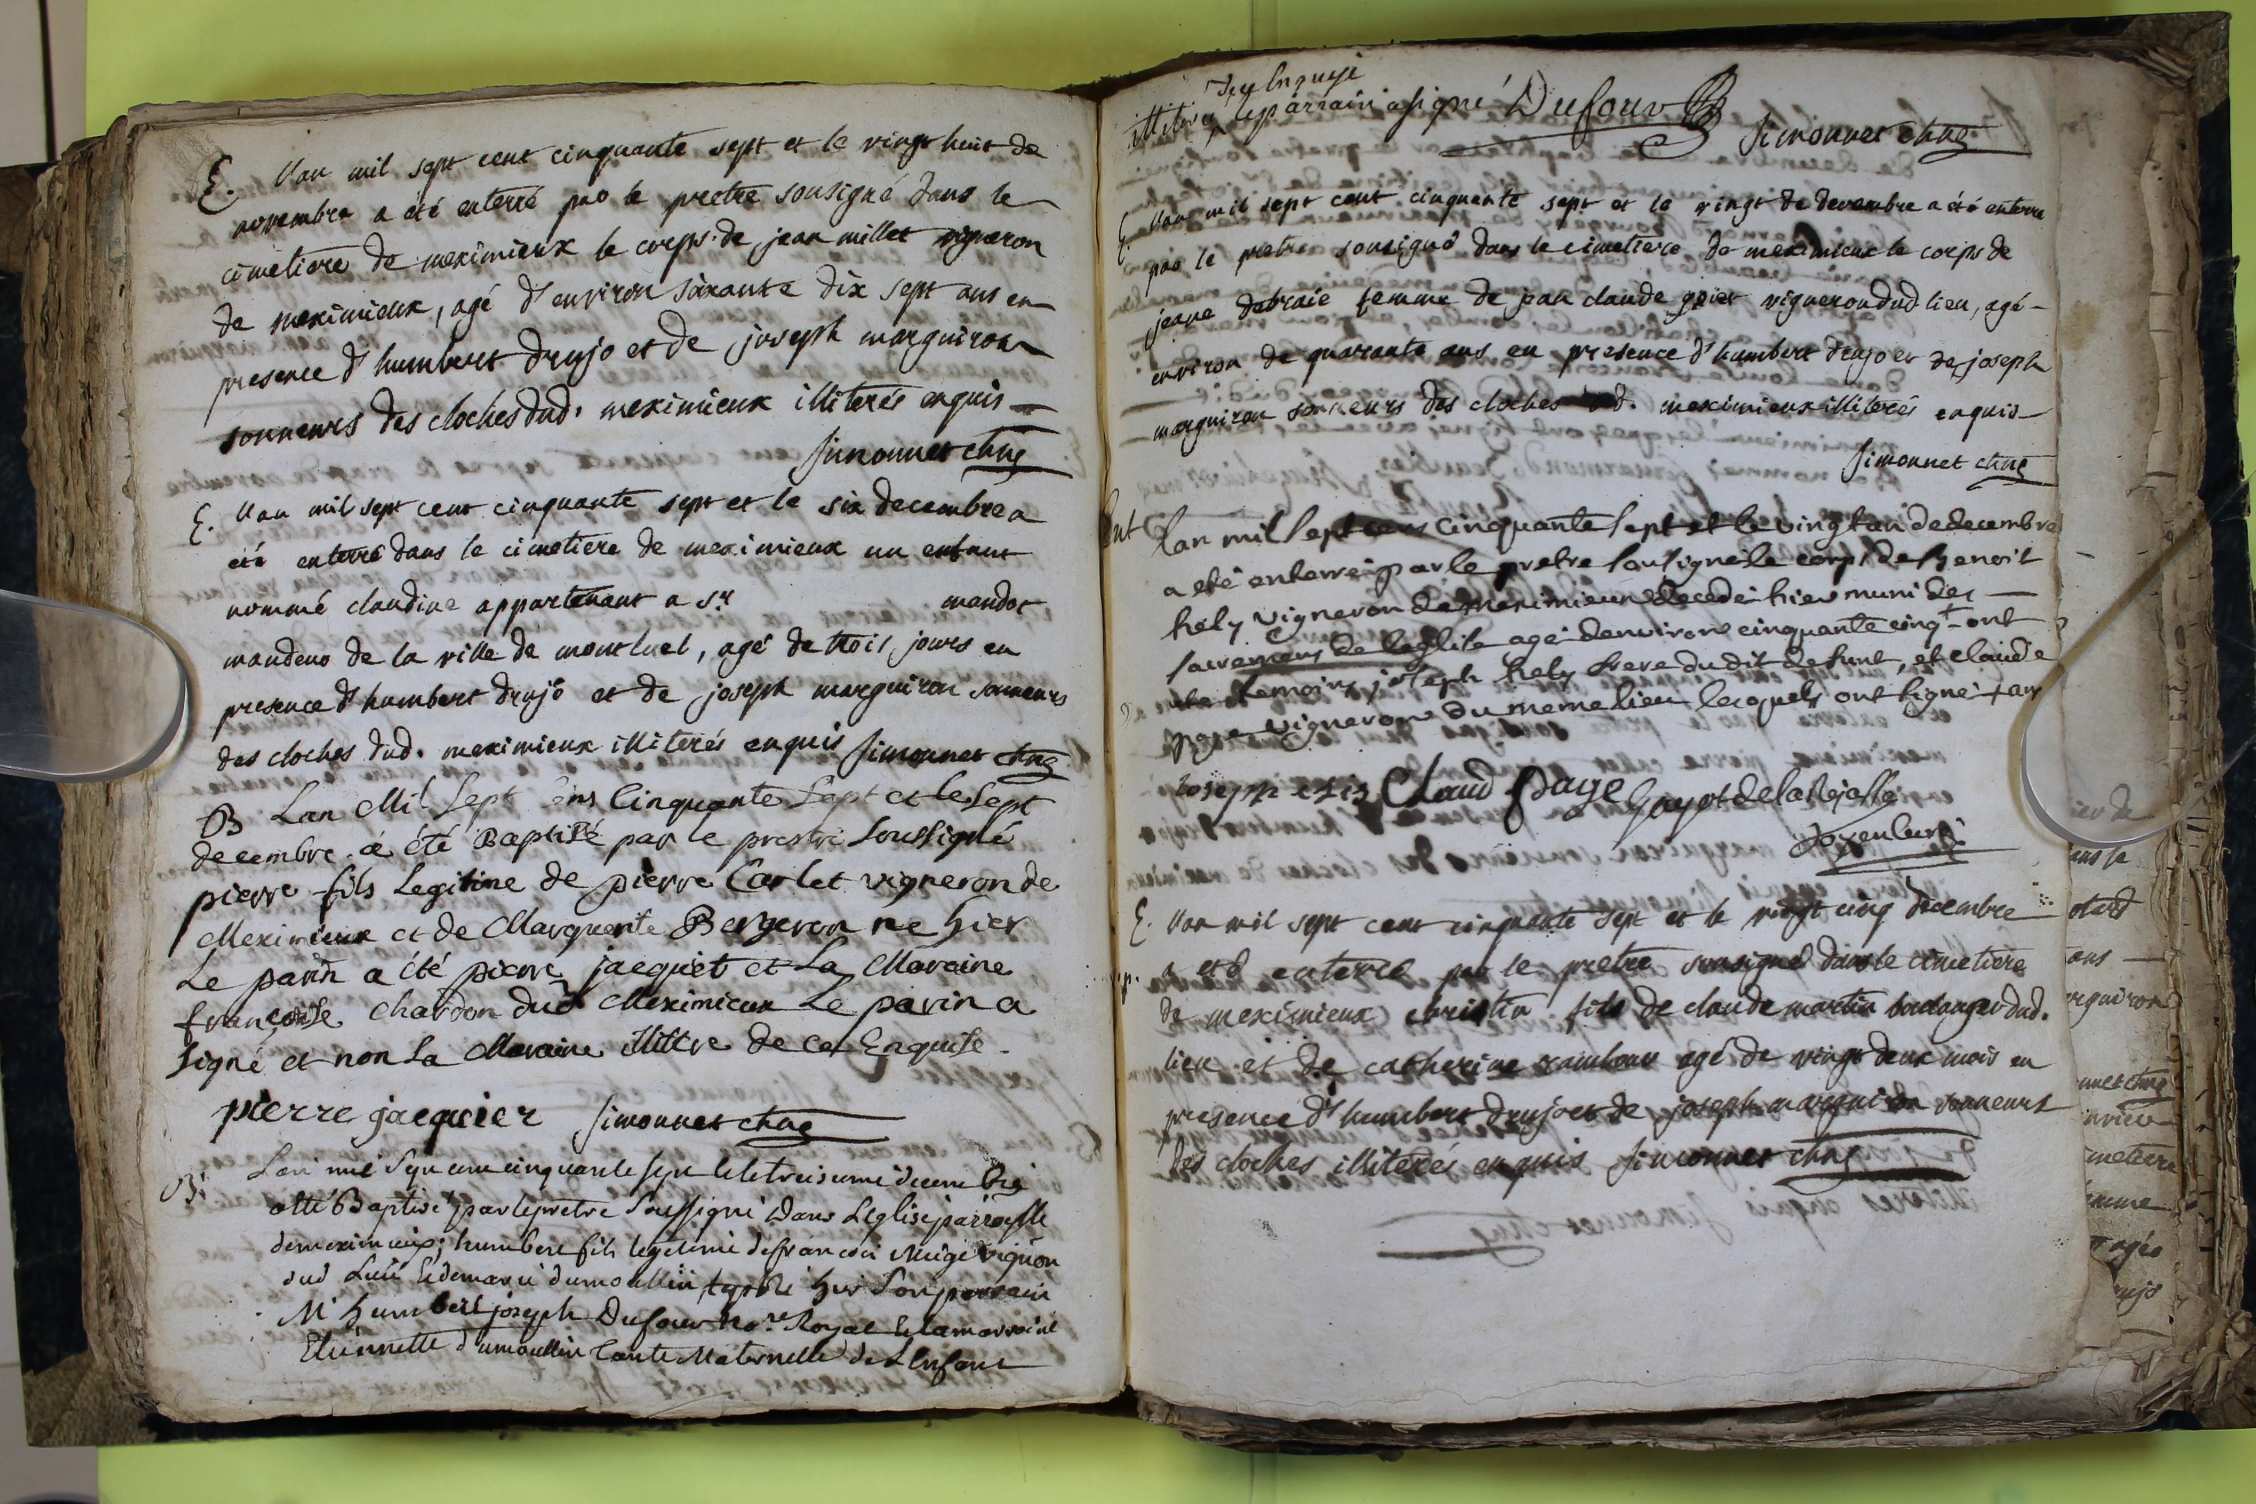 E. l'an mil sept cent cinquante sept et le vingt huit de
novembre a été enterré par le pretre sousigné dans le
cimetiere de meximieux le corps de jean millet vigneron
de meximieux, agé d'environ soixante dix sept ans en
presence d'humbert drujo et de joseph marguiron
sonneurs des cloches dud. meximieux illiterés enquis
Simonnet
E. l'an mil sept cent cinquante sept et le six decembre a
été enterré dans le cimetiere de meximieux un enfant
nommé claudine appartenant a Sr mandot
de la ville de montluel, agé de trois jours en
presence d'humbert drujo et de joseph marguiron sonneurs
des cloches dud. meximieux illiterés enquis Simonnet
B Lan Mil Sept Cens Cinquante Sept et le Sept
decembre a été Baptisé par le prestre Soussigné
pierre fils Legitime de pierre Carlet vigneron de
Meximieux et de Marguerite Bergeron ne hier
Le parin a été pierre jacquet et La Maraine
françoise chardon dud Meximieux Le parin a
Signé et non La Maraine illittre de ce Enquise
pierre jacquier Simonnet
B. Lan mil Sept cent cinquante sept le treisieme decembre
été Baptisé par le pretre Soussigné Dans L'eglise
de meximieux, humbert fils legitime de francois
dud Lieu et de marie dumoullin Son parrain
Mr humbert joseph Dufour Nore Royal et la marraine
Etiennette dumoullin tante Maternelle de L'enfant
de ce enquise
illiteré le parrain a signé Dufour
Simonnet
E. l'an mil sept cent cinquante sept et le vingt de decembre a été enterré
par le pretre sousigné dans le cimetiere de meximieux le corps de
jeane debraie femme de jean claude vigneron dud lieu, agé
environ de quarante ans en presence d'humbert drujo et de joseph
marguiron sonneurs des cloches dud. meximieux illiterés enquis
Simonnet
Ent lan mil sept cens cinquante sept et le vingt un de decembre
a eté enterré par le pretre soussigné le corps de Benoit
hely vigneron de meximieux decedé hier muni des
sacremens de leglise agé denviron cinquante cinq ont
temoins joseph hely frere du dit defunt, et claude
page vigneron du meme lieu lesquels ont signé
Claud page Guyot de la
E. l'an mil sept cent cinquante sept et le vingt cinq decembre
a eté enterré par le pretre sousigné dans le cimetiere
de meximieux fils de claude martin boulanger dud.
lieu et de catherine agé de vingt deux mois en
presence d'humbert drujo et de joseph marguiron sonneurs
des cloches illiterés enquis Simonnet